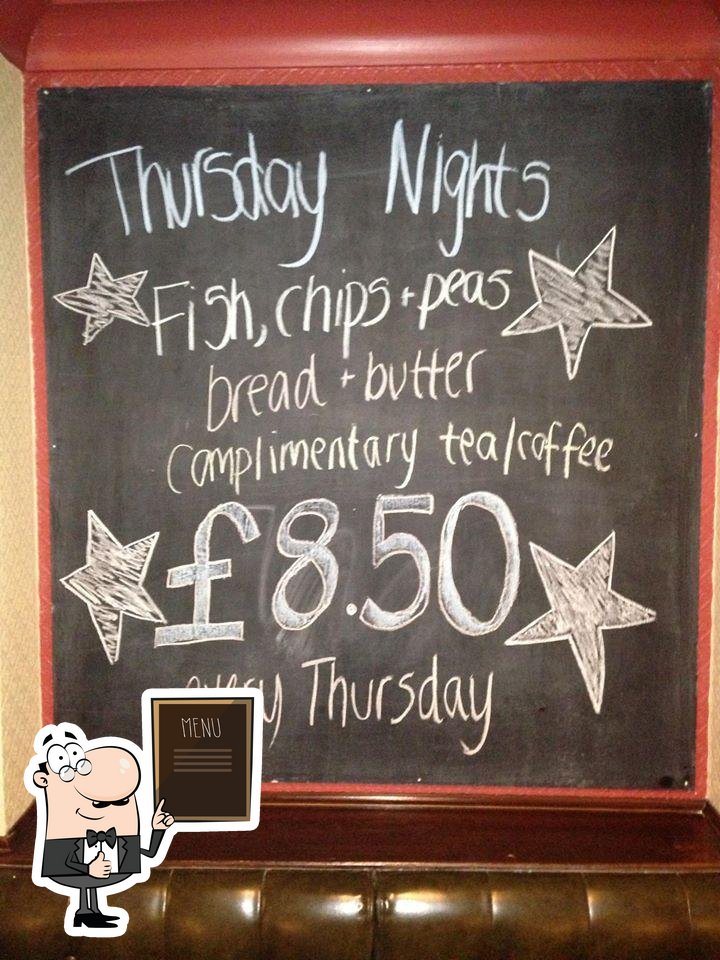 Thursday Nights
Fish, chips + peas
bread + butter
complimentary tea/coffee
£8.50
every Thursday
MENU